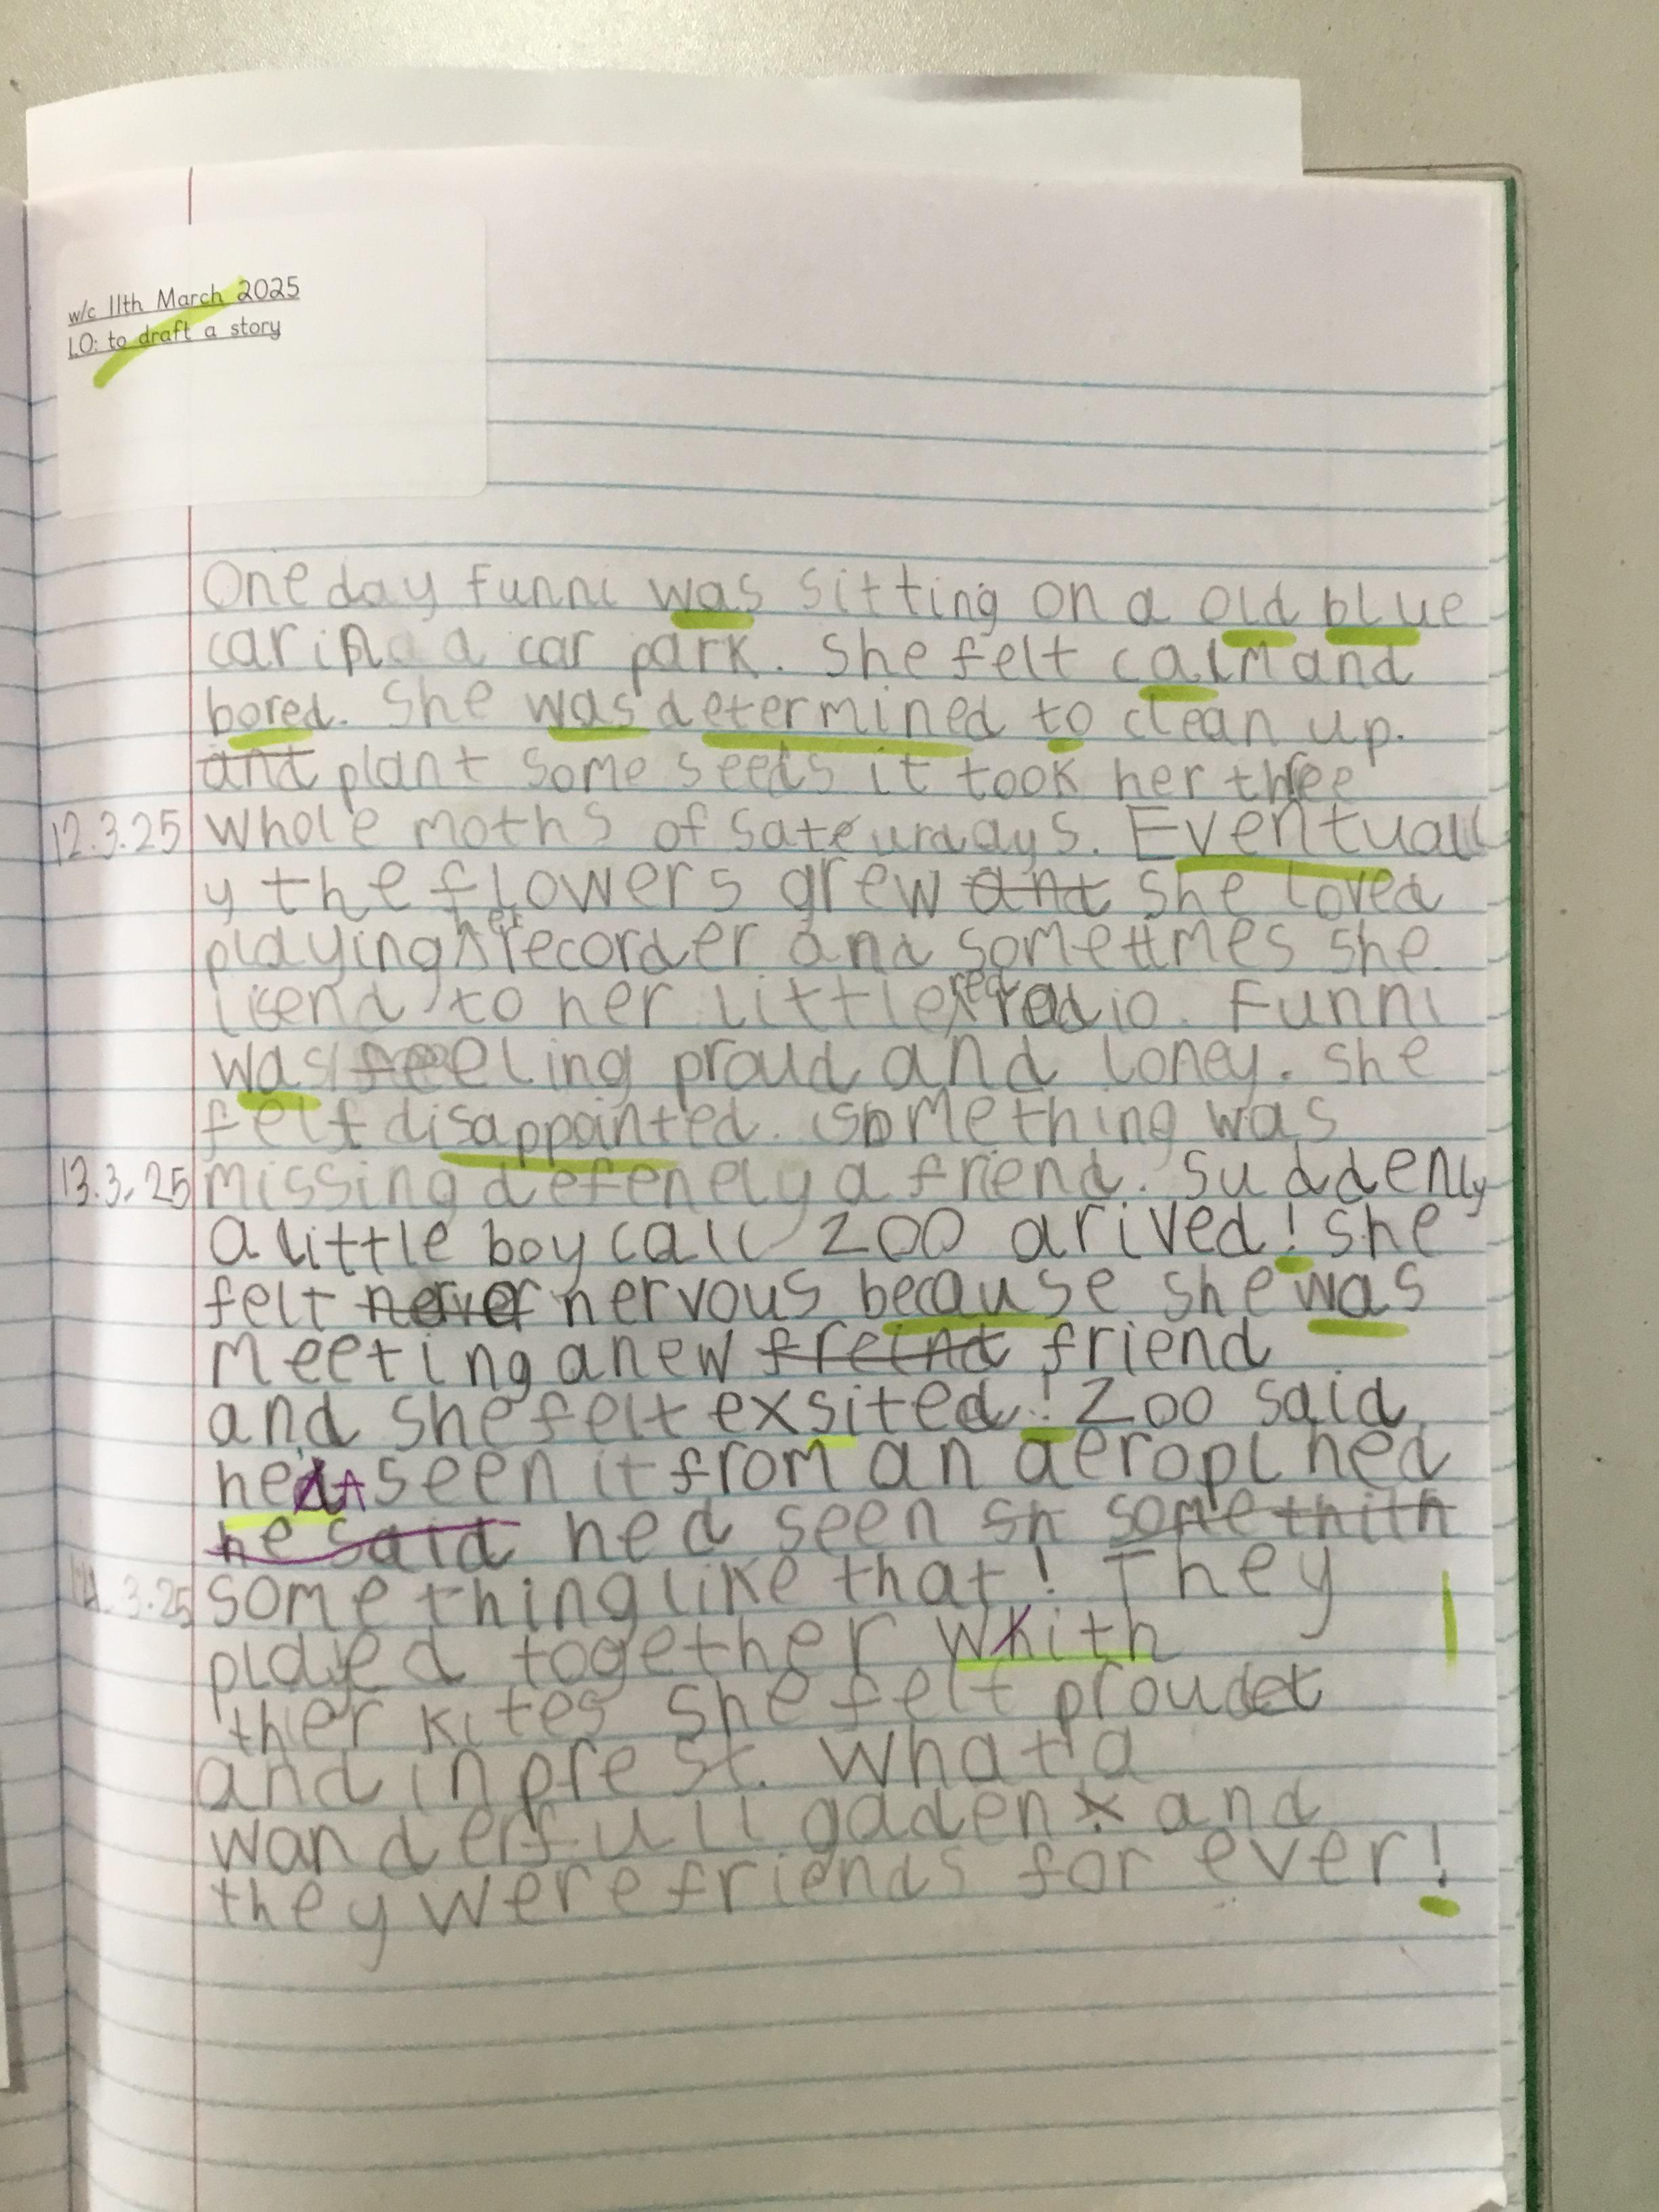 w/c 11th March 2025
LO: to draft a story
One day funni was sitting on a old blue
car in a car park. She felt calm and
bored. She was determined to clean up.
and plant some seeds it took her three
12.3.25 whole moths of sateurdays. Eventuall
y the flowers grew and she loved
playing her recorder and sometimes she
lisend to her little red radio. Funni
was feeling proud and loney. She
felt disappointed. Something was
13.3.25 missing defenely a friend. Suddenly
a little boy call Zoo arived! she
felt nervous because she was
meeting a new freind friend
and she felt exsited! Zoo said
hed seen it from an aeroplned
he said hed seen sn somethith
14.3.25 something like that! They
played together whith
ther kites She felt proud
and inprest. What a
wanderfull gaden and
they were friends for ever!